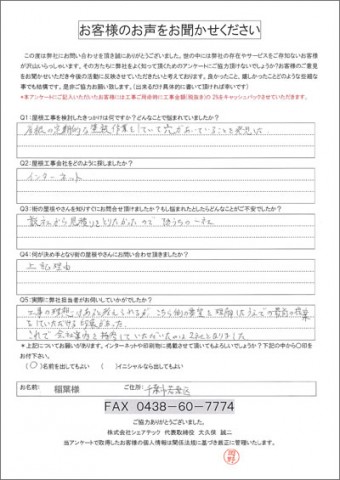 お客様のお声をお聞かせください
この度は弊社にお問い合わせを頂き誠にありがとうございました。世の中には弊社の存在やサービスをご存知ないお客様
が沢山いらっしゃいます。その方たちに弊社をよく知って頂くためのアンケートにご協力頂けないでしょうか?お客様のご意見
をお聞かせいただき今後の活動に反映させていただきたいと考えております。良かったこと、嬉しかったことどのような些細な
事でも結構です。是非ご協力お願い致します。(出来るだけ具体的に書いて頂ければ幸いです)
*本アンケートにご記入いただいたお客様には工事ご用命時に工事金額(税抜き)の2%をキャッシュバックさせていただきます。
Q1:屋根工事を検討したきっかけは何ですか?どんなことで悩まれていましたか?
屋根の定期的な塗装作業としていて穴があいていることを発見した
Q2:屋根工事会社をどのように探しましたか?
インターネット
Q3:街の屋根やさんを知りすぐにお問合せ頂けましたか?もしたらどんなことがご不安でしたか?
数社から見積りをとりたかったので そのうちの一社
Q4:何が決め手となり街の屋根やさんにお問い合わせ頂きましたか?
上記理由
Q5:実際に弊社担当者がお伺いしていかがでしたか?
工事の理想はあると思えられるが こちら側の要望を理解した上での最善の提案
をしていただける印象がありました
これで 会社案内と検討していただいたのは2社となりました
*上記についてお願いがあります。インターネットや印刷物に掲載させて頂いてもよろしいでしょうか?下記の中から〇印を
お付下さい。
(〇)名前を出してもよい ( )イニシャルなら出してもよい
お名前: 稲葉様 ご住所: 千葉市若葉区
FAX 0438-60-7774
ご協力ありがとうございました。
株式会社シェアテック 代表取締役 大久保 誠二
当アンケートで取得したお客様の個人情報は関係法規に基づき厳正に管理いたします。